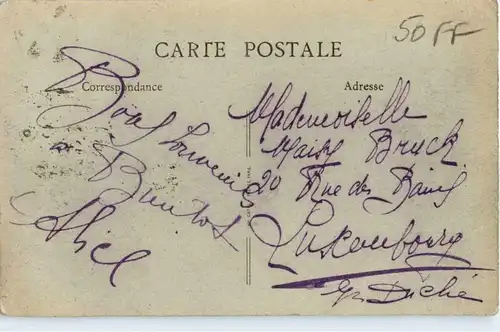 50 FF
CARTE POSTALE
Correspondance
Adresse
Bons Souvenirs
à Bientot
Alice
Mademoiselle
Maisy Bruck
20 Rue des Bains
Luxembourg
Gr Duché